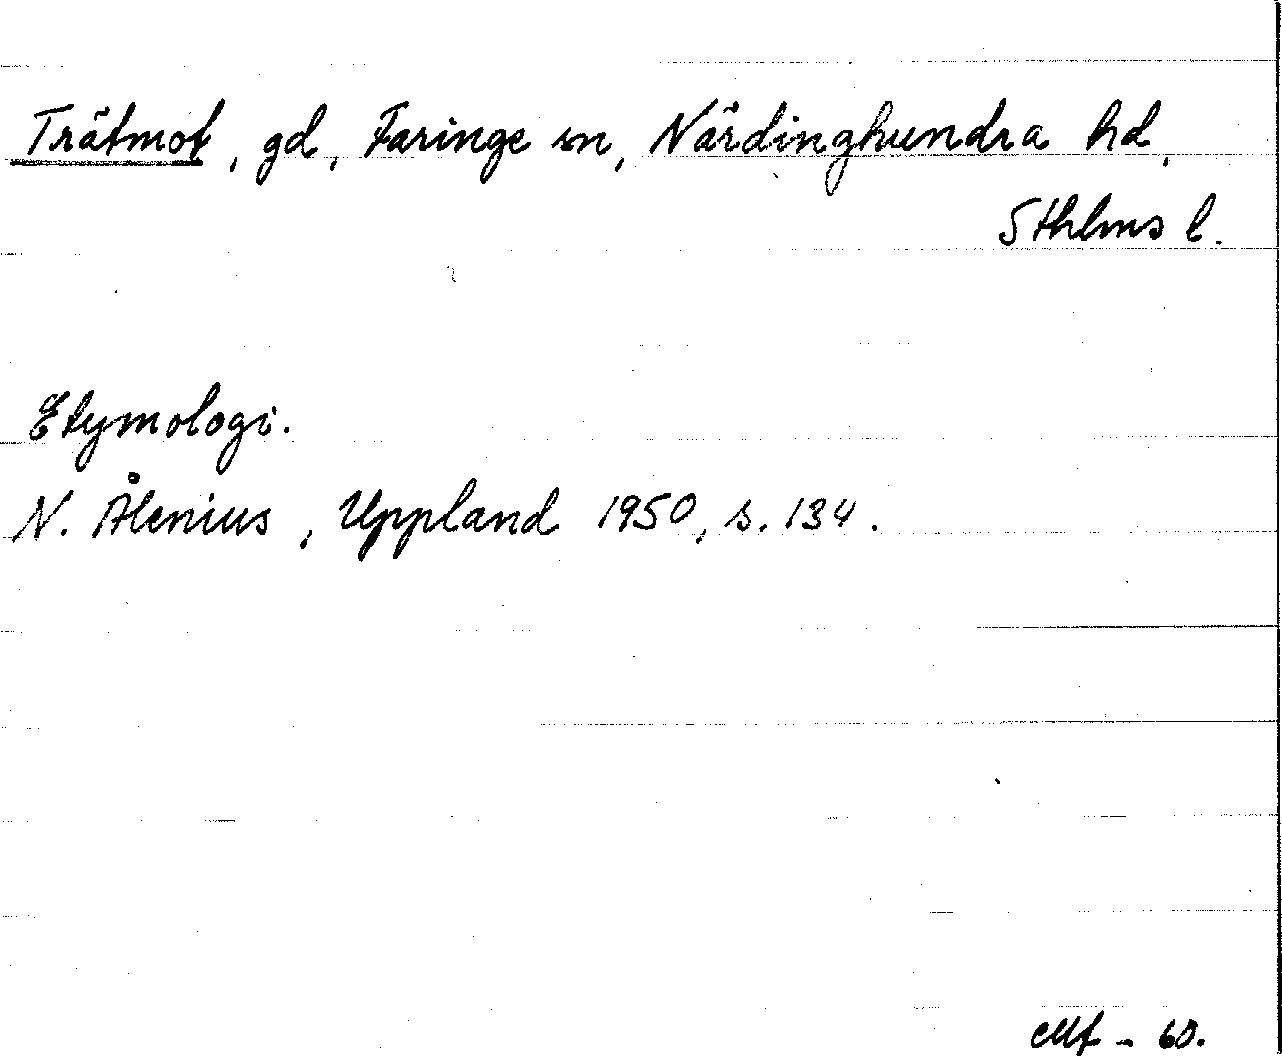 Trätmot, gd, Faringe sn, Närdinghundra hd,
Sthlms l.
Etymologi.
N. Ålenius, Uppland 1950, s. 134.
- 60.